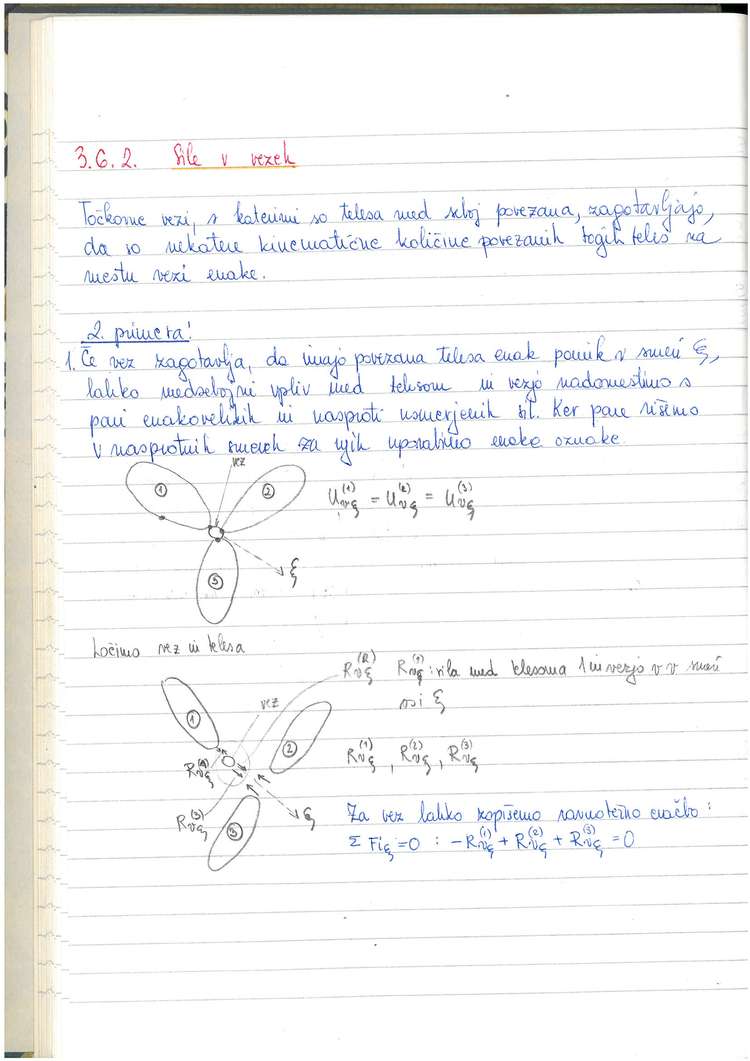 3.6.2. Sile v vezeh
Točkovne vezi, s katerimi so telesa med seboj povezana, zagotavljajo,
da so nekatere kinematične količine povezanih togih teles na
mestu vezi enake.
2. primera!
1. Če vez zagotavlja, da imajo povezana telesa enak pomik v smeri ξ,
lahko medsebojni vpliv med telesom in vezjo nadomestimo s
pari enakovelikih in nasproti usmerjenih sil. Ker pare rišemo
v nasprotnih smereh za njih uporabimo enake oznake
vez
① ②
U_vξ^(1) = U_vξ^(2) = U_vξ^(3)
③
ξ
Ločimo vez in telesa
R_vξ^(2) R_vξ^(1): sila med telesoma 1 in vezjo v v smeri
osi ξ
vez
① ②
R_vξ^(1)
R_vξ^(1), R_vξ^(2), R_vξ^(3)
R_vξ^(3)
③
ξ
Za vez lahko zapišemo ravnotežno enačbo:
Σ Fiξ = 0 : -R_vξ^(1) + R_vξ^(2) + R_vξ^(3) = 0